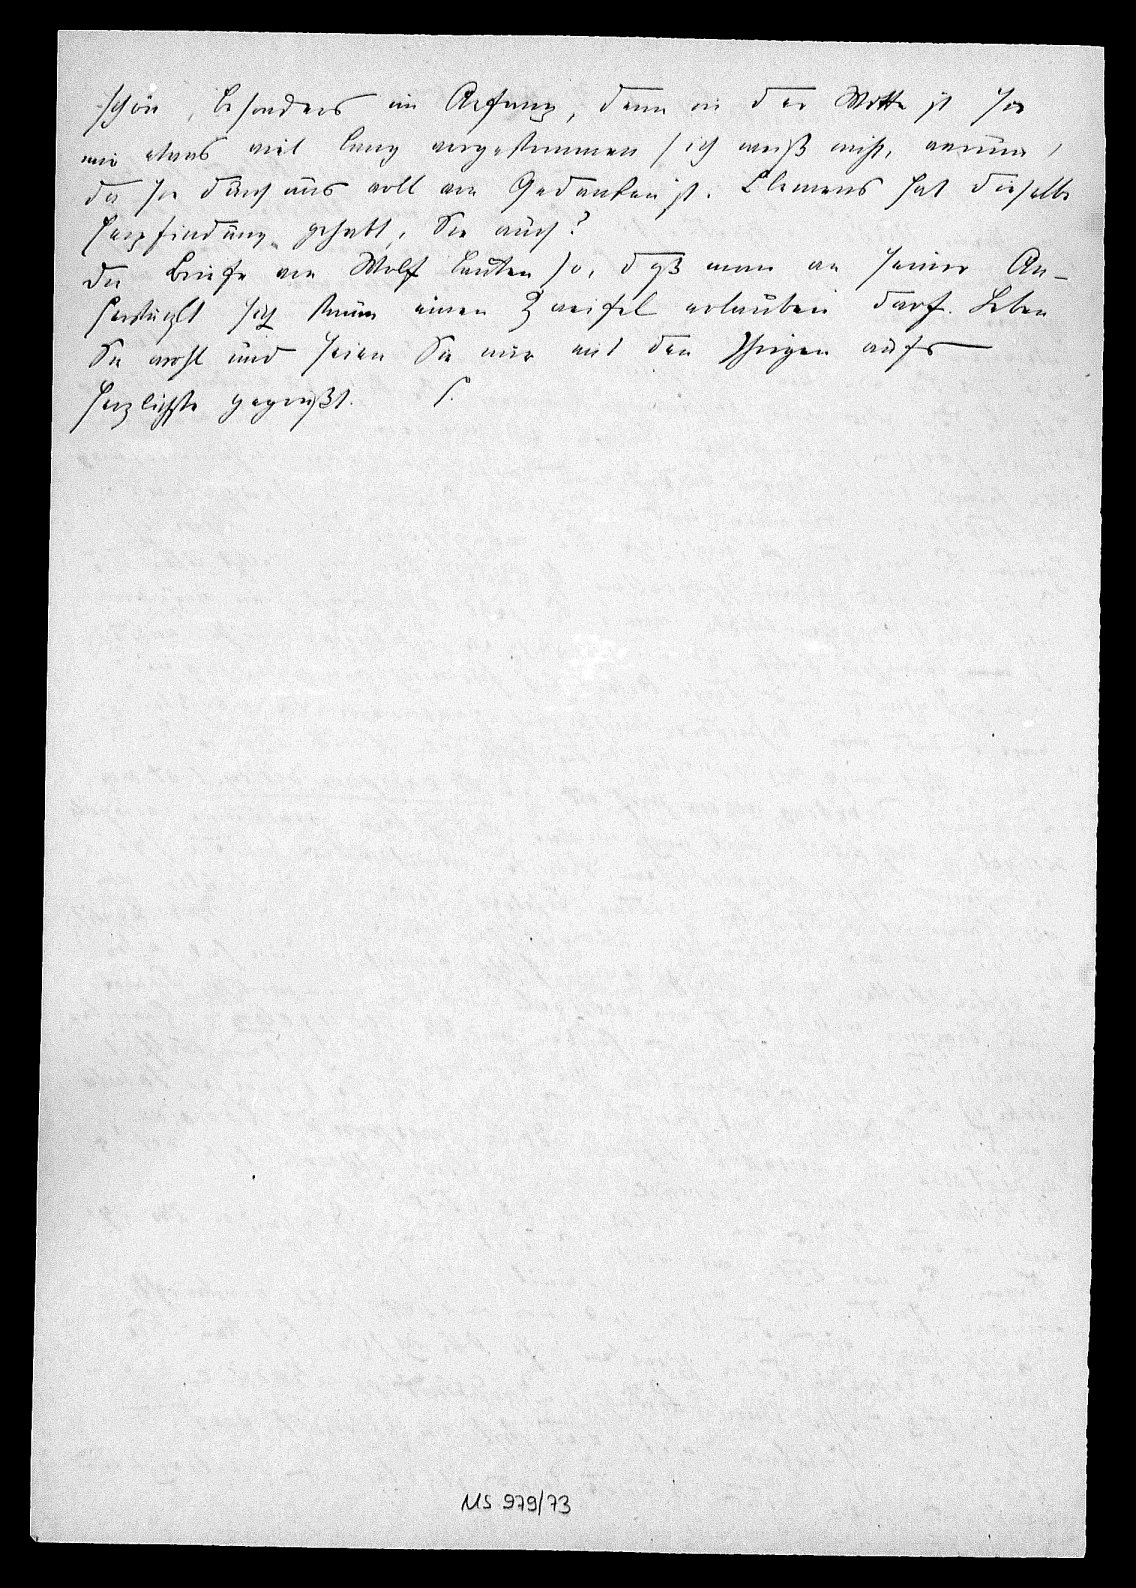 schön, besonders im Anfang, denn in der Mitte ist sie
mir etwas viel lang vorgekommen / ich weiß nicht, warum /
da sie durchaus voll von Gedanken ist. Clemens hat dieselbe
Empfindung gehabt, Sie auch?
Die Briefe von Wolf lauten so, daß man an seiner An-
sich kaum einen Zweifel erlauben darf. Leben
Sie wohl und seien Sie mir mit den Ihrigen aufs
herzlichste gegrüßt.
MS 979/73